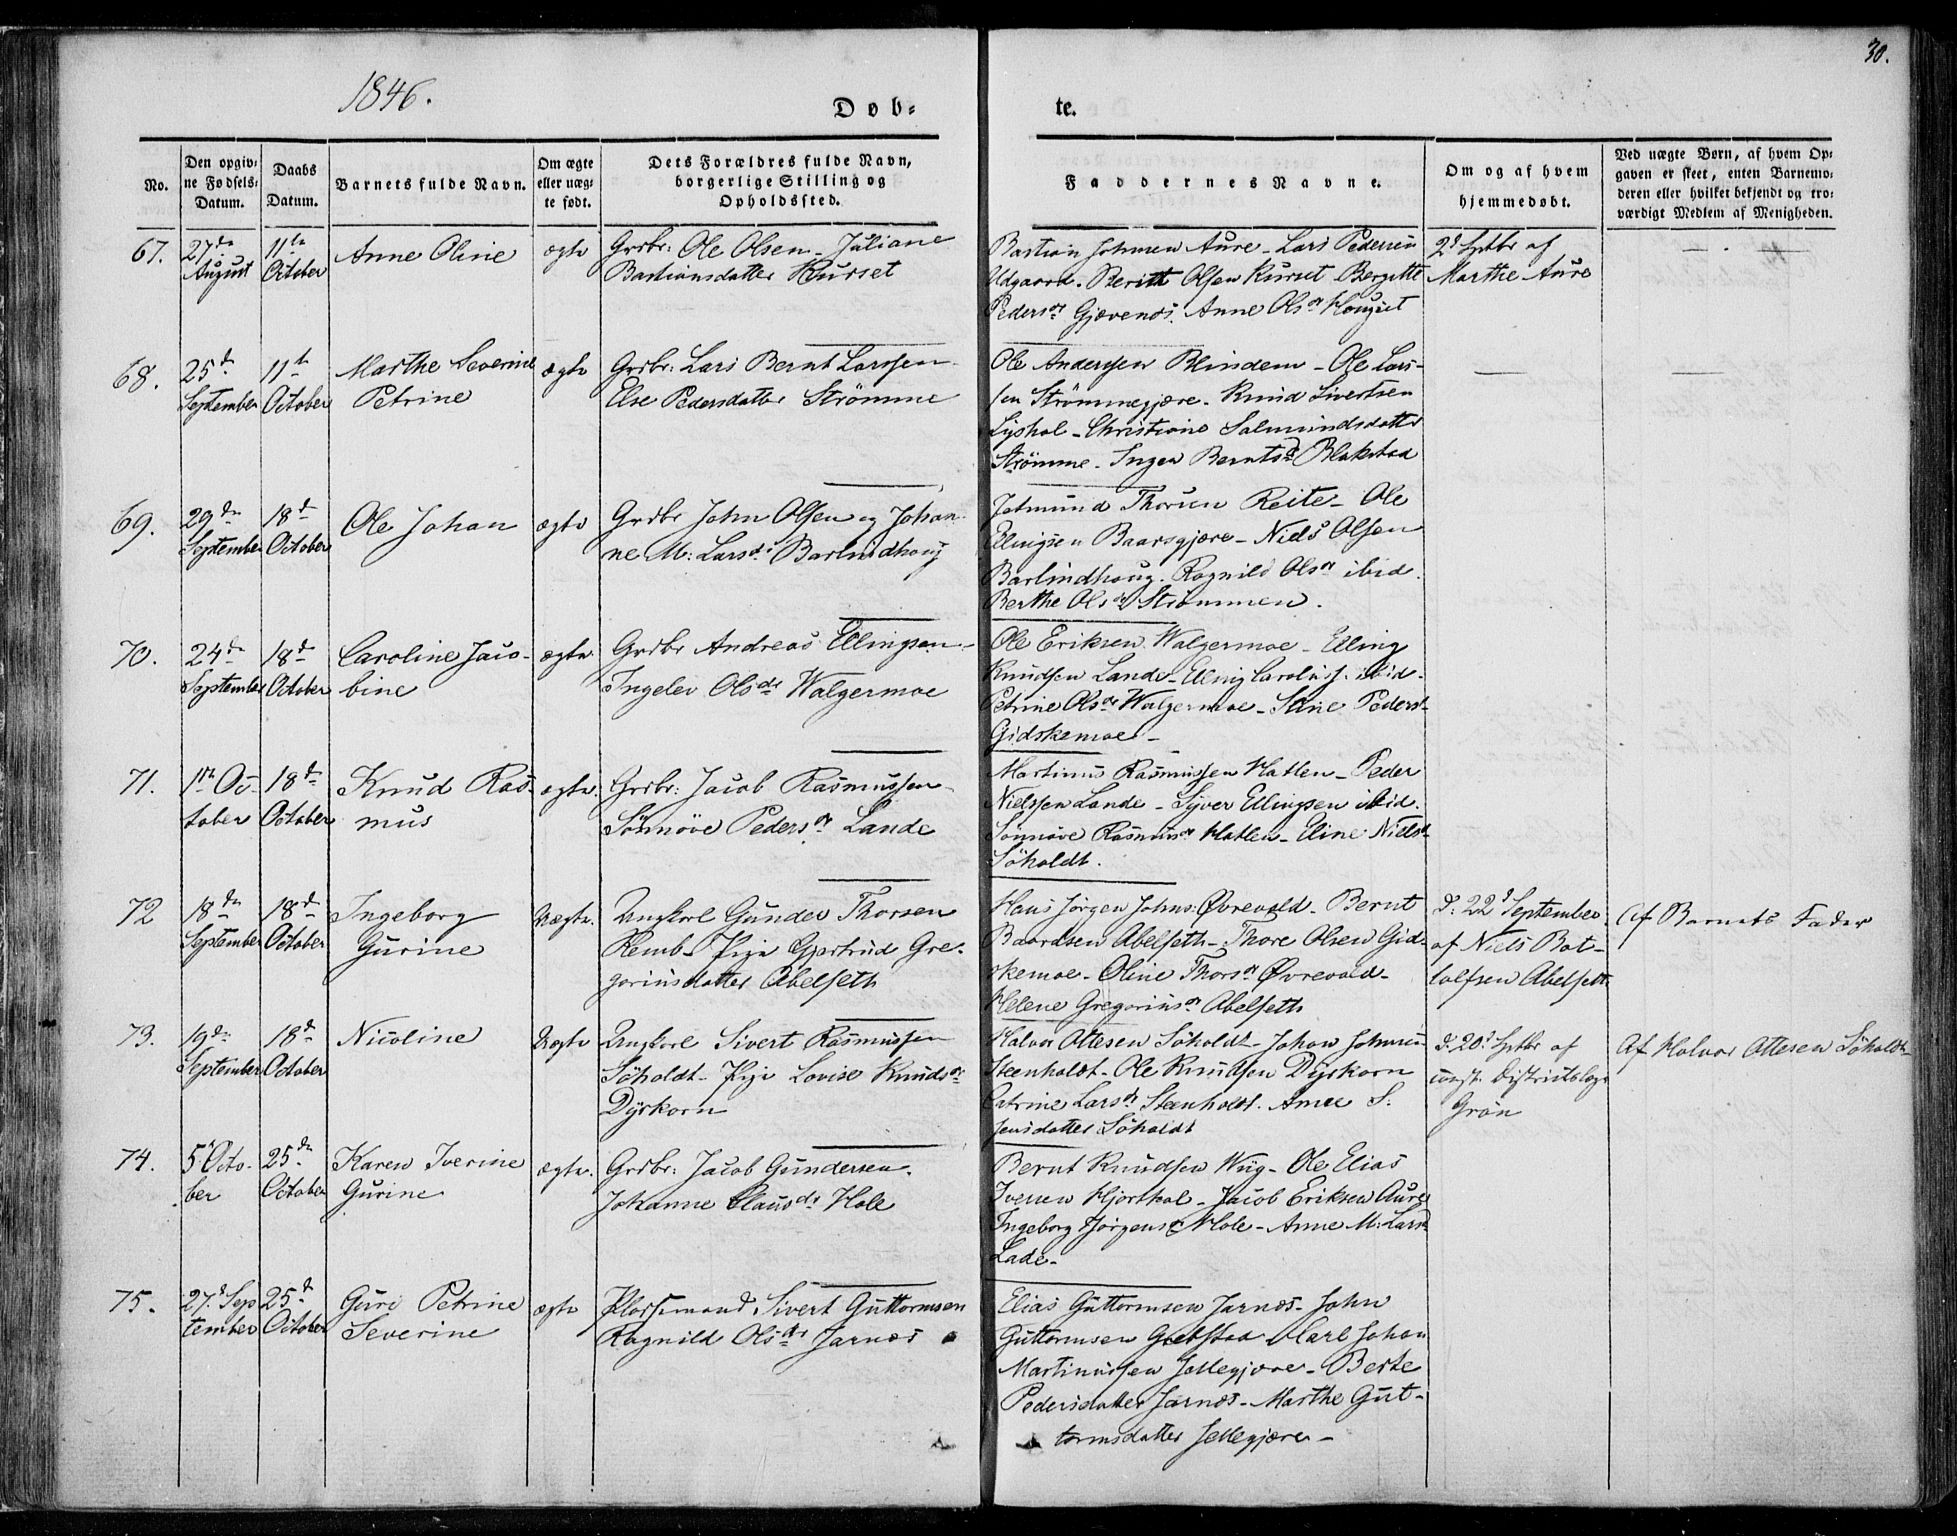 30.
1846.
Døb-
te.
No.
Den opgiv-
ne Fødsels-
Datum.
Daabs
Datum.
Barnets fulde Navn.
Om ægte
eller uæg-
te født.
Dets Forældres fulde Navn,
borgerlige Stilling og
Opholdssted.
Faddernes Navne.
Om og af hvem
hjemmedøbt.
Ved uægte Børn, af hvem Op-
gaven er skeet, enten Barnemo-
deren eller hvilket bekjendt og tro-
værdigt Medlem af Menigheden.
67.
27de
August
11te
October
Anne Oline
ægte
Grdbr: Ole Olsen - Juliane
Bastiansdatter Hurset
Bastian Johnsen Aure - Lars Pedersen
Udgaard. Beritt Olsen Kurset - Bergitte
Pedersdr Gjævenes. Anne Olsdr
2d Septbr af
Marthe Aure
68.
25d
September
11te
October
Marthe Severine
Petrine
ægte
Grdbr: Lars Bernt Larssen
Else Pedersdatter Strömme
Ole Anderssen Blindem - Ole Lars-
sen Strömmegjære. Knud Sivertsen
Lyshol - Christiane Salmundsdatter
Strömme - Inger Berntsd Blakstad
69.
29de
September
18de
October
Ole Johan
ægte
Grdbr John Olsen og Johan-
ne M: Larsd: Barlindhoug
Johnund Thorsen Reite - Ole
Ellingsen Baarsgjære - Niels Olsen
Barlindhoug. Ragnild Olsdr ibid.
Berthe Olsdr Strömmen.
70.
24de
September
18de
October
Caroline Jaco-
bine
ægte
Grdbr Andreas Ellingsen -
Ingelev Olsdr Walgermoe
Ole Eriksen Walgermoe - Elling
Knudsen Lande - Elling Carolus. ibid.
Petrine Olsdr Walgermoe - Stine Pedersd
Gidskemoe -
71.
1ste Oc-
tober
18de
October
Knud Ras-
mus
ægte.
Grdbr: Jacob Rasmussen
Sönnöve Pedersdr Lande
Martinus Rasmussen Hatlen - Peder
Nielssen Lande - Syver Ellingsen ibid.
Sönnöve Rasmusdr Hatlen - Eline Nielsd
Söholdt.
72
18de
September
18de
October
Ingeborg
Gurine
Uægte.
Ungkarl Gunder Thorsen
Remb - Pige Gjertrud Gre-
goriusdatter Abelseth
Hans Jörgen Johns: Øvrevold - Bernt
Baardsen Abelseth - Thore Olsen Gid-
skemoe - Oline Thorsdr Øvrevold -
Helene Gregoriusdr Abelseth
D: 22d September
af Niels Bot-
tolfsen Abelseth
Af Barnets Fader
73.
19de
September
18de
October
Nicoline
Uægte
Ungkarl Sivert Rasmussen
Söholdt - Pige Lovise Knudsdr
Dyrkorn
Halvor Ottesen Söholdt - Johan Johnsen
Steenholdt - Ole Knudsen Dyrkorn
Catrine Larsdr Steenholdt. Anne S.
Jensdatter Söholdt
d: 20d Septbr af
const. Districtslæge
Grön
Af Halvor Ottesen Söholdt
74.
5te Octo-
ber
25de
October
Karen Iverine
Gurine
ægte.
Grdbr: Jacob Gundersen.
Johanne Clausdr Hole
Bernt Knudsen Wiig - Ole Elias
Iversen Hjorthol - Jacob Eriksen Aure
Ingeborg Jörgensd Hole - Anne M: Larsd
Lade -
75.
27d Sep
tember
25d
October
Guri Petrine
Severine
ægte
Pladsemand Sivert Guttormsen
Ragnild Olsdr Jarnes
Elias Guttormsen Jarnes - John
Guttormsen Grebstad Karl Johan
Martinussen Jellegjære - Berte
Pedersdatter Jarnes - Marthe Gut-
tormsdatter Jellegjære -